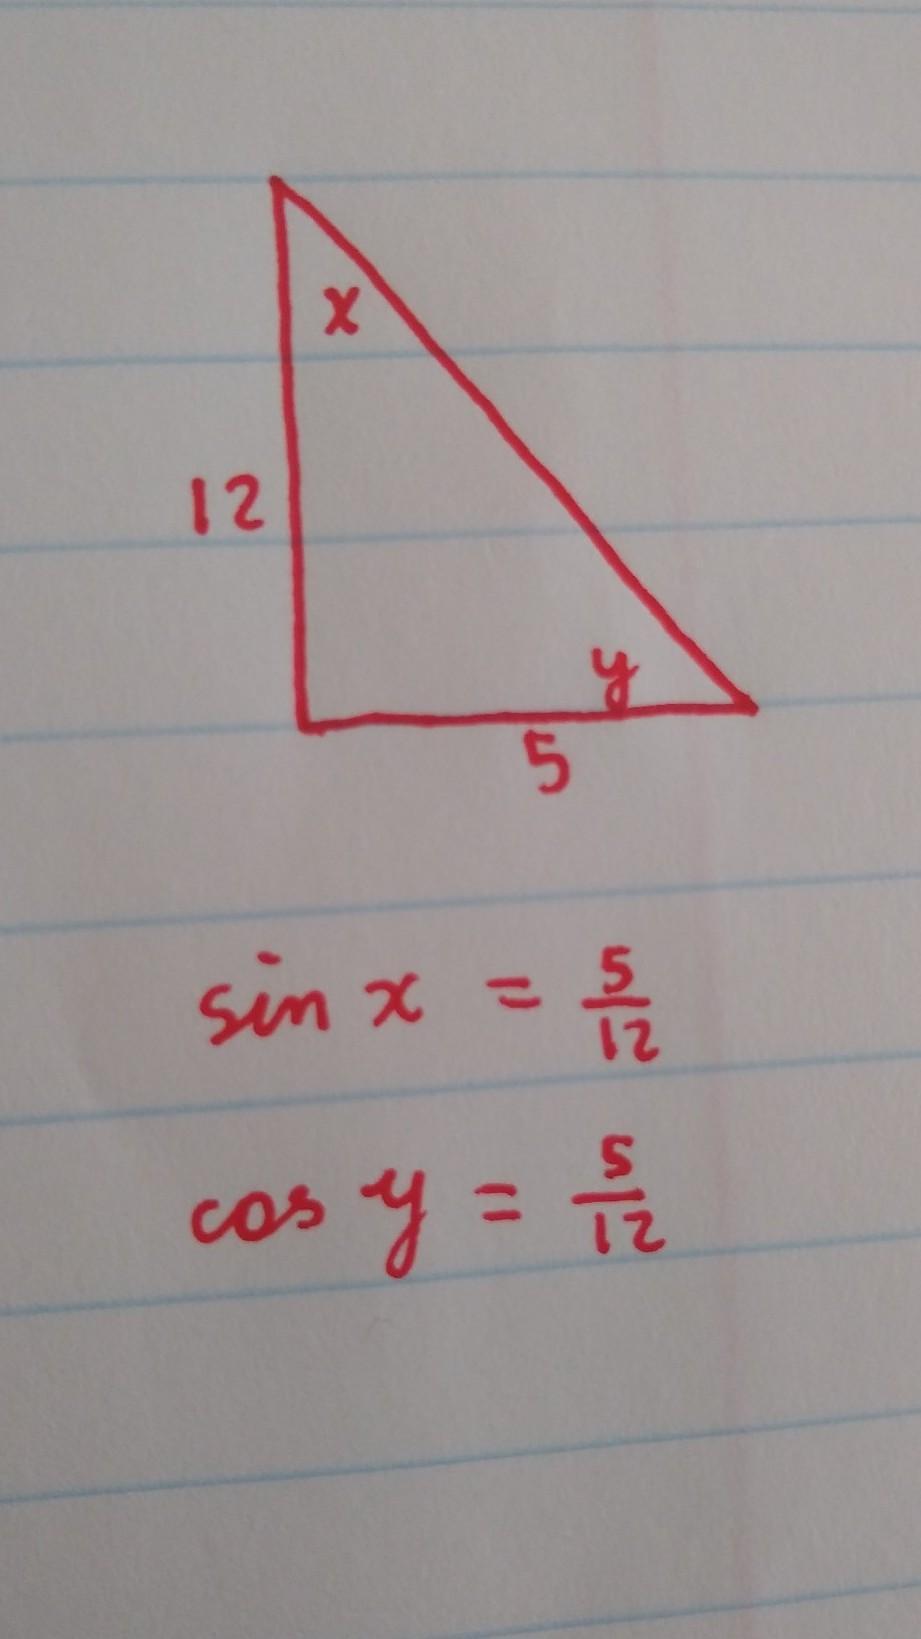 x
12
y
5
sin x = 5/12
cos y = 5/12